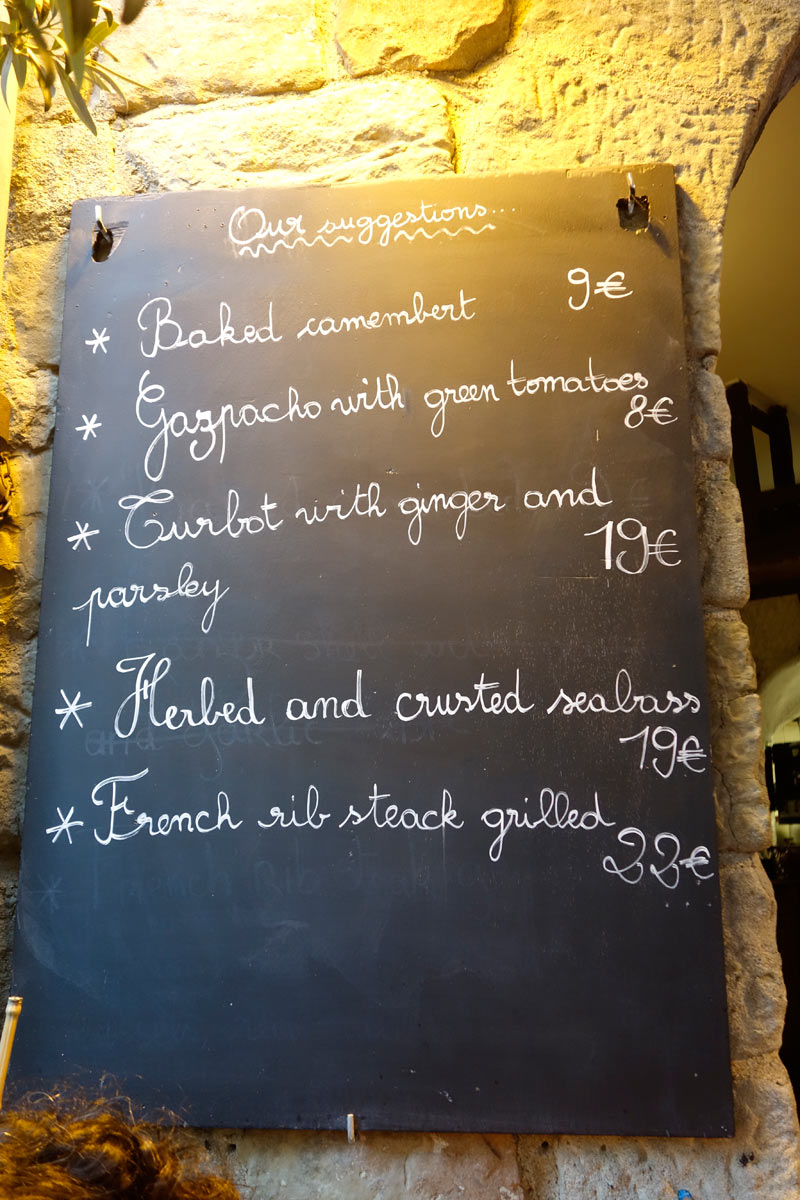 Our suggestions...
* Baked camembert 9€
* Gazpacho with green tomatoes
8€
* Turbot with ginger and
19€
parsley
* Herbed and crusted seabass
19€
* French rib steack grilled
22€